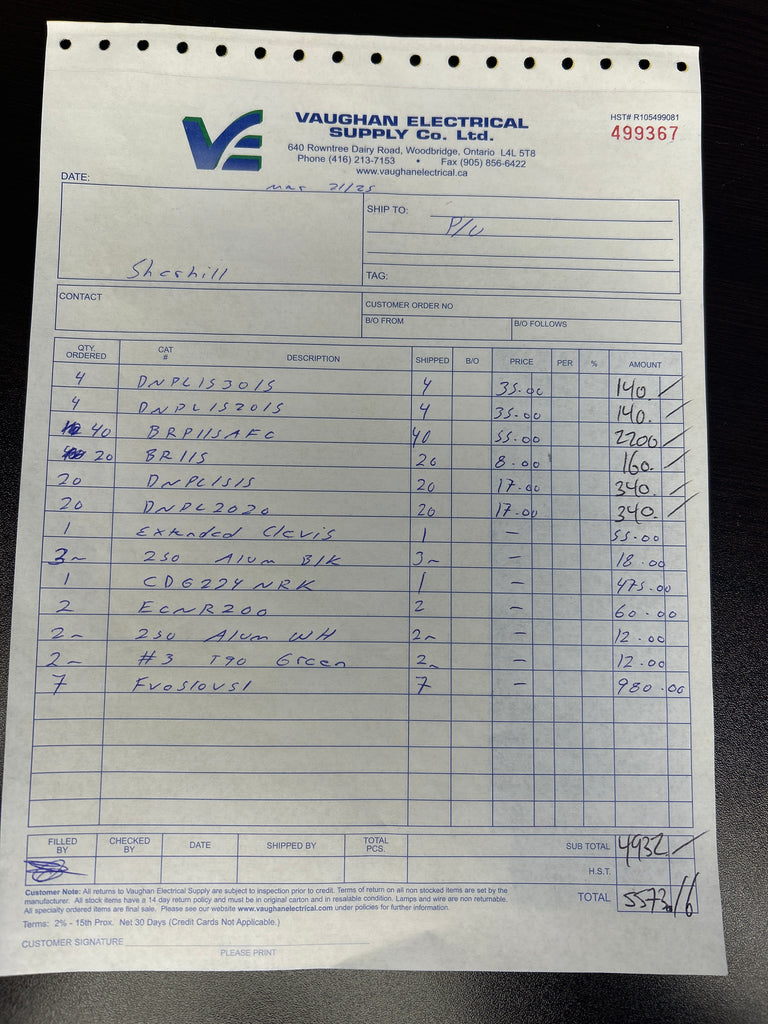 VAUGHAN ELECTRICAL
SUPPLY Co. Ltd.
640 Rowntree Dairy Road, Woodbridge, Ontario L4L 5T8
Phone (416) 213-7153 • Fax (905) 856-6422
www.vaughanelectrical.ca
HST# R105499081
499367
DATE: Mar 21/25
SHIP TO: P/U
Sherhill
TAG:
CONTACT
CUSTOMER ORDER NO
B/O FROM B/O FOLLOWS
QTY. ORDERED CAT # DESCRIPTION SHIPPED B/O PRICE PER % AMOUNT
4 DNPL1S301S 4 35.00 140.
4 DNPL1S201S 4 35.00 140.
40 BRP115AFC 40 55.00 2200
20 BR115 20 8.00 160.
20 DNPL1S1S 20 17.00 340.
20 DNPL2020 20 17.00 340.
1 Extended Clevis 1 — 55.00
3~ 250 Alum BLK 3~ — 18.00
1 CDG224NRK 1 — 475.00
2 ECNR200 2 — 60.00
2~ 250 Alum WH 2~ — 12.00
2~ #3 T90 Green 2~ — 12.00
7 7 — 980.00
FILLED BY CHECKED BY DATE SHIPPED BY TOTAL PCS. SUB TOTAL 4932
H.S.T.
TOTAL 5573.16
Customer Note: All returns to Vaughan Electrical Supply are subject to inspection prior to credit. Terms of return on all non stocked items are set by the
manufacturer. All stock items have a 14 day return policy and must be in original carton and in resalable condition. Lamps and wire are non returnable.
All specialty ordered items are final sale. Please see our website www.vaughanelectrical.com under policies for further information.
Terms: 2% - 15th Prox. Net 30 Days (Credit Cards Not Applicable.)
CUSTOMER SIGNATURE
PLEASE PRINT